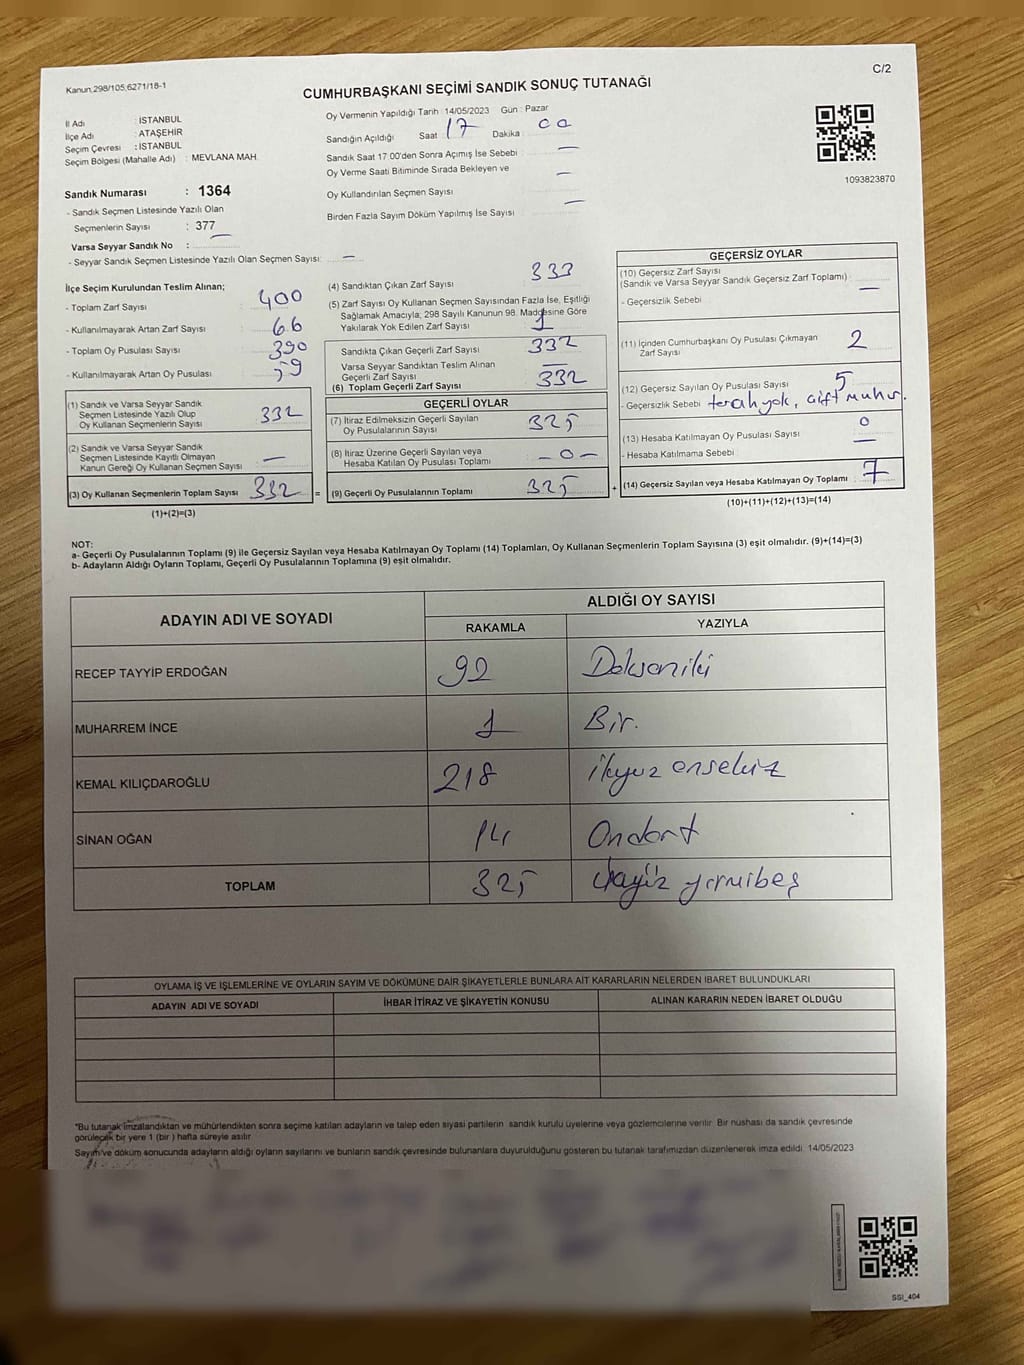 Kanun,298/105,6271/18-1
C/2
CUMHURBAŞKANI SEÇİMİ SANDIK SONUÇ TUTANAĞI
İl Adı : İSTANBUL
İlçe Adı : ATAŞEHİR
Seçim Çevresi : İSTANBUL
Seçim Bölgesi (Mahalle Adı) : MEVLANA MAH.
Oy Vermenin Yapıldığı Tarih : 14/05/2023 Gün : Pazar
Sandığın Açıldığı Saat 17 Dakika : 00
Sandık Saat 17:00'den Sonra Açımış İse Sebebi : —
Oy Verme Saati Bitiminde Sırada Bekleyen ve
Oy Kullandırılan Seçmen Sayısı —
Birden Fazla Sayım Döküm Yapılmış İse Sayısı —
1093823870
Sandık Numarası : 1364
- Sandık Seçmen Listesinde Yazılı Olan
Seçmenlerin Sayısı : 377
Varsa Seyyar Sandık No : —
- Seyyar Sandık Seçmen Listesinde Yazılı Olan Seçmen Sayısı: —
İlçe Seçim Kurulundan Teslim Alınan;
- Toplam Zarf Sayısı 400
- Kullanılmayarak Artan Zarf Sayısı 66
- Toplam Oy Pusulası Sayısı 390
- Kullanılmayarak Artan Oy Pusulası 59
(1) Sandık ve Varsa Seyyar Sandık
Seçmen Listesinde Yazılı Olup
Oy Kullanan Seçmenlerin Sayısı 332
(2) Sandık ve Varsa Seyyar Sandık
Seçmen Listesinde Kayıtlı Olmayan
Kanun Gereği Oy Kullanan Seçmen Sayısı —
(3) Oy Kullanan Seçmenlerin Toplam Sayısı 332 =
(1)+(2)=(3)
(4) Sandıktan Çıkan Zarf Sayısı 333
(5) Zarf Sayısı Oy Kullanan Seçmen Sayısından Fazla İse, Eşitliği
Sağlamak Amacıyla; 298 Sayılı Kanunun 98. Maddesine Göre
Yakılarak Yok Edilen Zarf Sayısı 1
Sandıkta Çıkan Geçerli Zarf Sayısı 332
Varsa Seyyar Sandıktan Teslim Alınan
Geçerli Zarf Sayısı —
(6) Toplam Geçerli Zarf Sayısı 332
GEÇERLİ OYLAR
(7) İtiraz Edilmeksizin Geçerli Sayılan
Oy Pusulalarının Sayısı 325
(8) İtiraz Üzerine Geçerli Sayılan veya
Hesaba Katılan Oy Pusulası Toplamı -0-
(9) Geçerli Oy Pusulalarının Toplamı 325 +
GEÇERSİZ OYLAR
(10) Geçersiz Zarf Sayısı
(Sandık ve Varsa Seyyar Sandık Geçersiz Zarf Toplamı) —
- Geçersizlik Sebebi
(11) İçinden Cumhurbaşkanı Oy Pusulası Çıkmayan
Zarf Sayısı 2
(12) Geçersiz Sayılan Oy Pusulası Sayısı 5
- Geçersizlik Sebebi tercih yok, çift mühür.
(13) Hesaba Katılmayan Oy Pusulası Sayısı 0
- Hesaba Katılmama Sebebi —
(14) Geçersiz Sayılan veya Hesaba Katılmayan Oy Toplamı 7
(10)+(11)+(12)+(13)=(14)
NOT:
a- Geçerli Oy Pusulalarının Toplamı (9) ile Geçersiz Sayılan veya Hesaba Katılmayan Oy Toplamı (14) Toplamları, Oy Kullanan Seçmenlerin Toplam Sayısına (3) eşit olmalıdır. (9)+(14)=(3)
b- Adayların Aldığı Oyların Toplamı, Geçerli Oy Pusulalarının Toplamına (9) eşit olmalıdır.
ADAYIN ADI VE SOYADI
ALDIĞI OY SAYISI
RAKAMLA YAZIYLA
RECEP TAYYİP ERDOĞAN 92 Doksaniki
MUHARREM İNCE 1 Bir.
KEMAL KILIÇDAROĞLU 218 ikiyüz onsekiz
SİNAN OĞAN 14 Ondört
TOPLAM 325 üçyüz yirmibeş
OYLAMA İŞ VE İŞLEMLERİNE VE OYLARIN SAYIM VE DÖKÜMÜNE DAİR ŞİKAYETLERLE BUNLARA AİT KARARLARIN NELERDEN İBARET BULUNDUKLARI
ADAYIN ADI VE SOYADI İHBAR İTİRAZ VE ŞİKAYETİN KONUSU ALINAN KARARIN NEDEN İBARET OLDUĞU
*Bu tutanak imzalandıktan ve mühürlendikten sonra seçime katılan adayların ve talep eden siyasi partilerin sandık kurulu üyelerine veya gözlemcilerine verilir. Bir nüshası da sandık çevresinde
görülecek bir yere 1 (bir ) hafta süreyle asılır
Sayım ve döküm sonucunda adayların aldığı oyların sayılarını ve bunların sandık çevresinde bulunanlara duyurulduğunu gösteren bu tutanak tarafımızdan düzenlenerek imza edildi. 14/05/2023
SSI_404